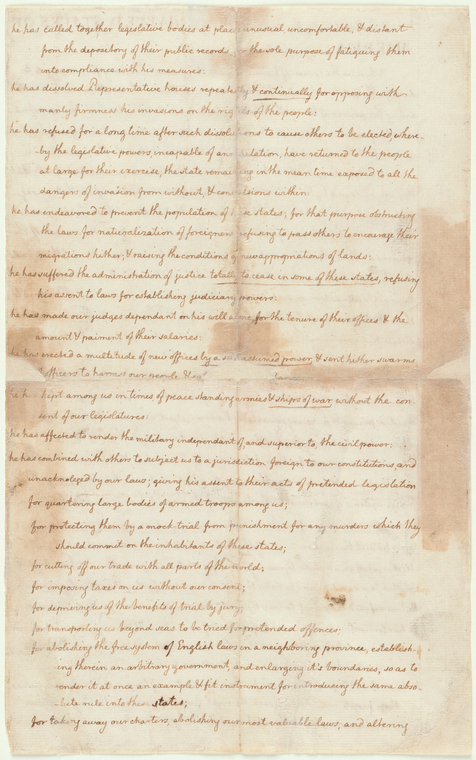 he has called together legislative bodies at places unusual, uncomfortable, & distant
from the depository of their public records, for the sole purpose of fatiguing them
into compliance with his measures:
he has dissolved Representative houses repeatedly & continually for opposing with
manly firmness his invasions on the rights of the people:
he has refused for a long time after such dissolutions to cause others to be elected, where-
-by the legislative powers, incapable of annihilation, have returned to the people
at large for their exercise, the state remaining in the mean time exposed to all the
dangers of invasion from without, & convulsions within:
he has endeavored to prevent the population of these states; for that purpose obstructing
the laws for naturalization of foreigners, refusing to pass others to encourage their
migrations hither; & raising the conditions of new appropriations of lands:
he has suffered the administration of justice totally to cease in some of these states, refusing
his assent to laws for establishing judiciary powers:
he has made our judges dependant on his will alone, for the tenure of their offices & the
amount & paiment of their salaries:
he has erected a multitude of new offices by a self-assumed power, & sent hither swarms
officers to harrass our people &
he has kept among us in times of peace standing armies & ships of war without the con
sent of our legislatures:
he has affected to render the military independant of, and superior to, the civil power:
he has combined with others to subject us to a jurisdiction foreign to our constitutions, and
unacknoleged by our laws; giving his assent to their acts of pretended legislation
for quartering large bodies of armed troops among us;
for protecting them by a mock trial from punishment for any murders which they
should commit on the inhabitants of these states;
for cutting off our trade with all parts of the world;
for imposing taxes on us without our consent;
for depriving us of the benefits of trial by jury;
for transporting us beyond seas to be tried for pretended offences:
for abolishing the free system of English laws in a neighboring province, establish-
ing therein an arbitrary government, and enlarging it's boundaries, so as to
render it at once an example & fit instrument for introducing the same abso-
-lute rule into these states;
for taking away our charters, abolishing our most valuable laws, and altering